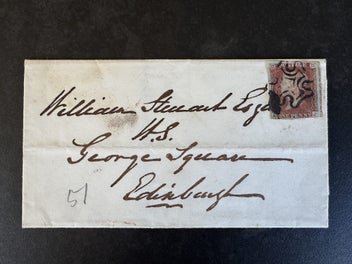 William Steuart Esqr
W.S.
George Square
Edinburgh
51
ONE PENNY